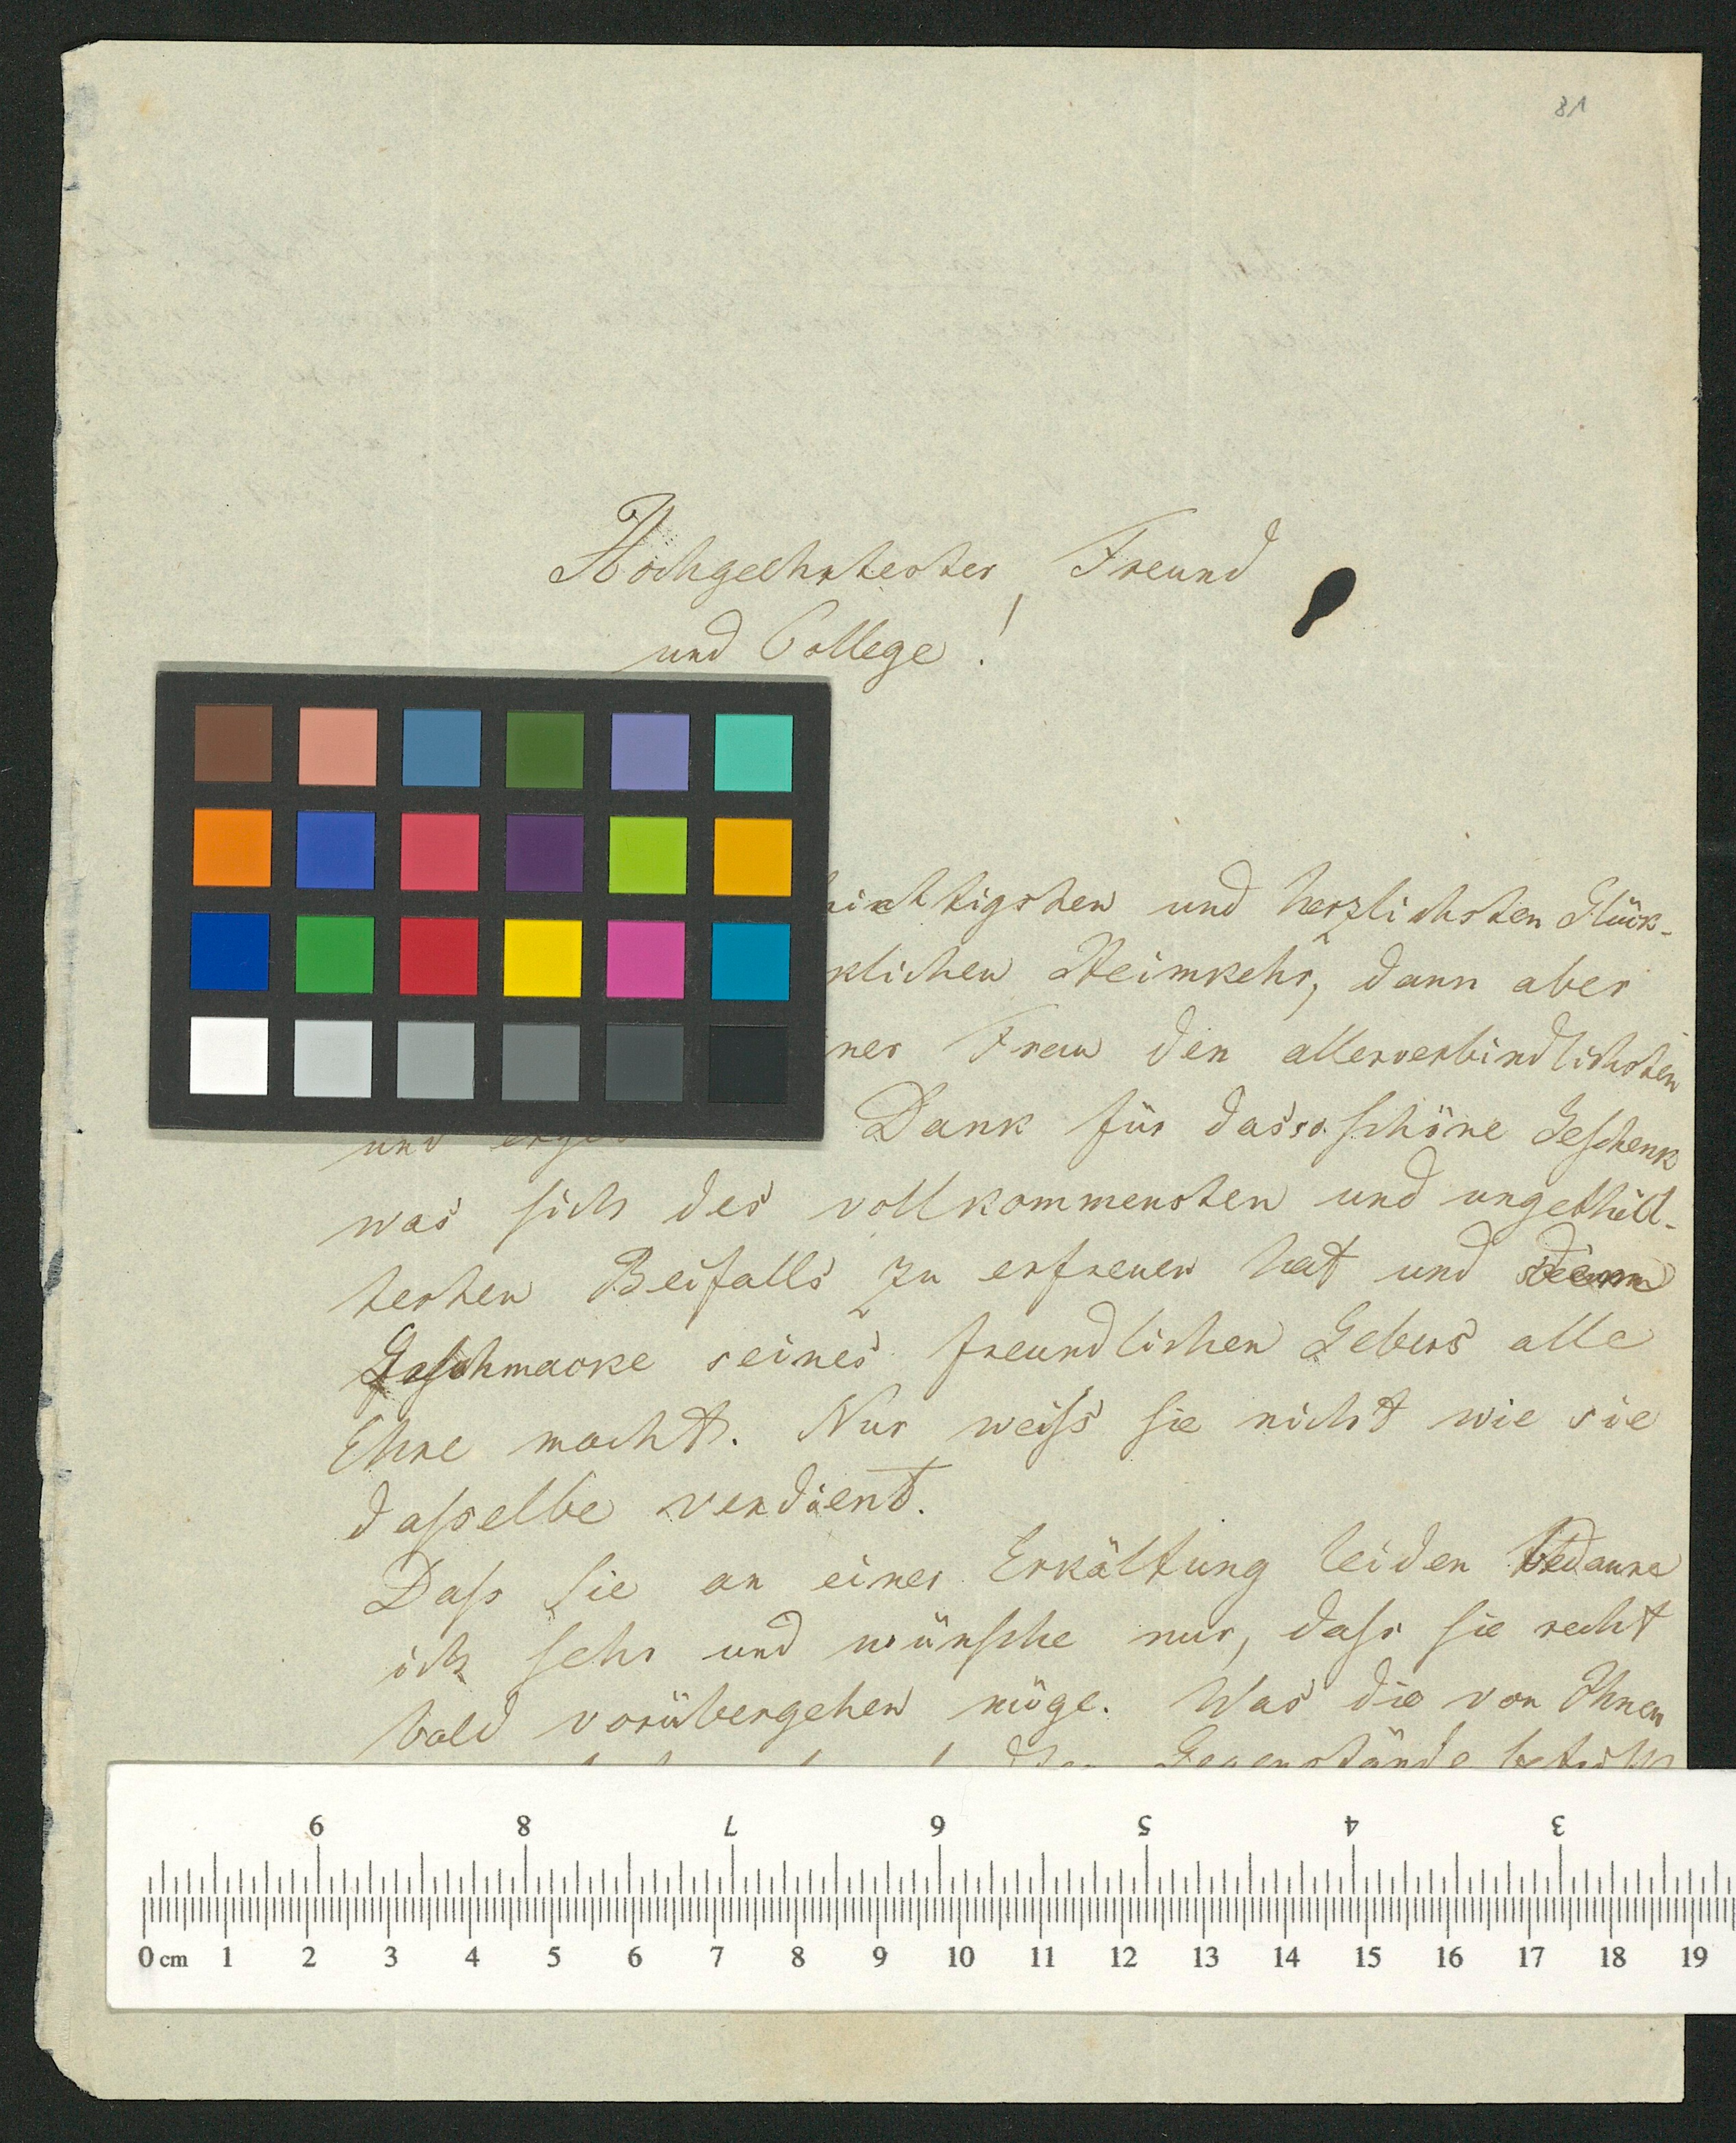 81
Hochgeehrtester Freund
und College!
und herzlichsten Glück-
klichen Heimkehr, dann aber
ner Frau den allerverbindlichsten
und Dank für das so schöne Geschenk
was sich des vollkommensten und ungetheil-
testen Beifalls zu erfreuen hat und dem
Geschmacke seines freundlichen Gebers alle
Ehre macht. Nur weiß sie nicht wie sie
dasselbe verdient.
Daß Sie an einer Erkältung leiden bedaure
ich sehr und wünsche nur, daß sie recht
bald vorübergehen möge. Was die von Ihnen
Gegenstände betrifft
9 8 7 6 5 4 3
0 cm 1 2 3 4 5 6 7 8 9 10 11 12 13 14 15 16 17 18 19